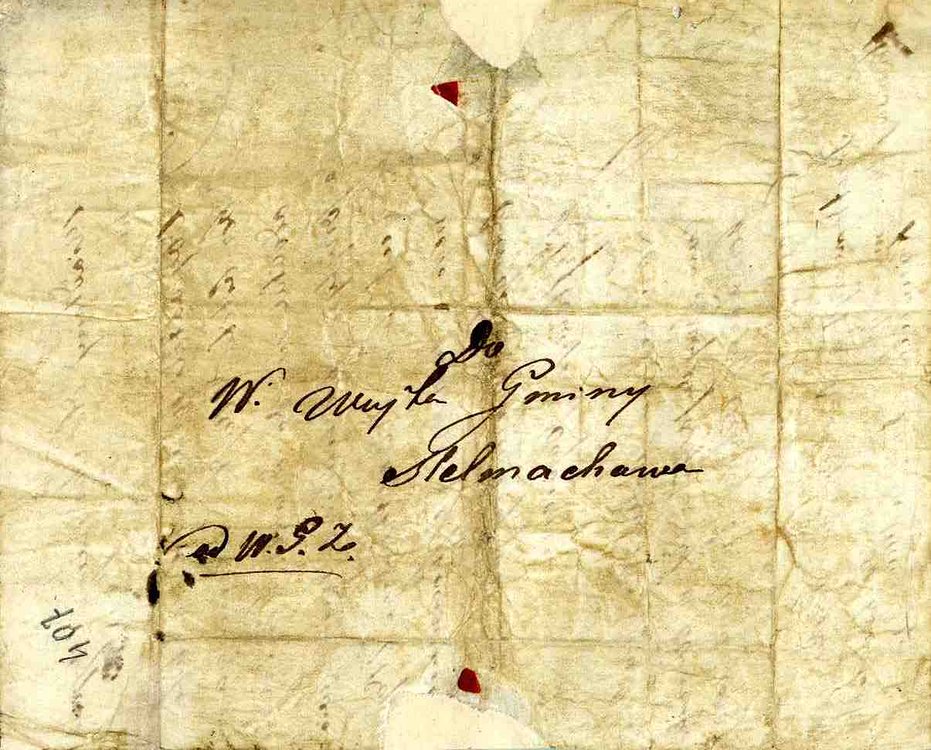 Do
W. Wujta Gminy
Stelmachowa
od W. G. Z.
407